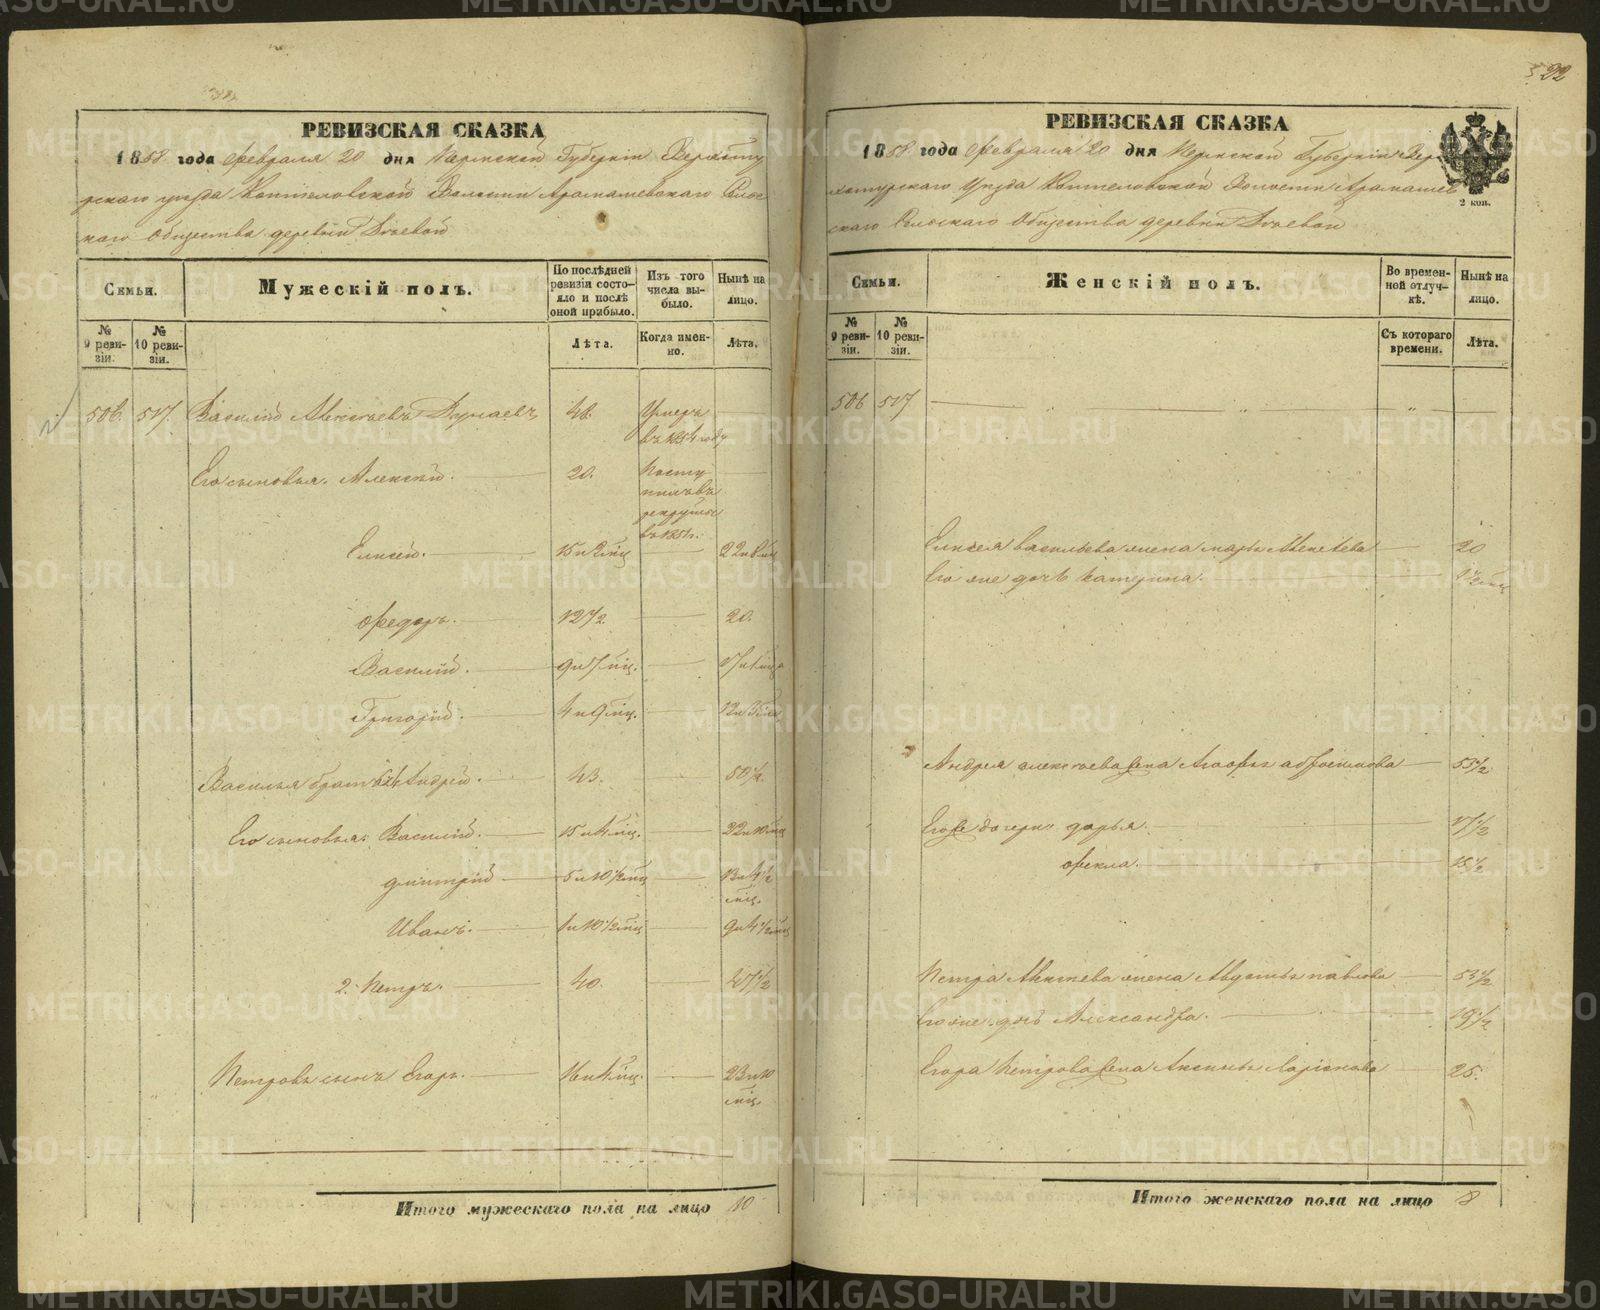 22
РЕВИЗСКАЯ СКАЗКА
1858 года Февраля 20 дня Пермской Губерніи Верхоту
рскаго уезда Коптеловской Волости Арамашевскаго Сельс
каго Общества деревни
Семьи.
Мужескій полъ.
По послѣдней ревизіи состояло и послѣ оной прибыло.
Изъ того числа выбыло.
Нынѣ на лицо.
№ 9 ревизіи.
№ 10 ревизіи.
Лѣта.
Когда именно.
Лѣта.
506. 517. Василий Алексеевъ 48. Умеръ
въ 1854 году
Его сыновья. Алексий. 20. Посту
пилъ въ
рекруты
въ 1854.
Елисей. 15 и 2 мѣц 22 и 8 мц
Федоръ. 12 1/2 20.
Василий. 9 и 7 мц.
Григорий. 4 и 9 мц.
Василья братья Андрей. 43. 50 1/2
Его сыновья: Василий. 15 и 4 мц. 22 и 10 мц
Дмитрий 5 и 10 1/2 мц 13 и 4 1/2
мц.
Иванъ. 1 и 10 1/2 мц 9 и 4 1/2 мц
2. Петръ. 40. 47 1/2
Петровъ сынъ Егоръ. 16 и 4 мц. 23 и 10
мц.
Итого мужескаго пола на лицо 10
РЕВИЗСКАЯ СКАЗКА
1858 года Февраля 20 дня Пермской Губерніи Вер
хотурскаго Уезда Коптеловской Волости Арамашев
скаго Сельскаго Общества деревни
2 коп.
Семьи.
Женскій полъ.
Во временной отлучкѣ.
Нынѣ на лицо.
№ 9 ревизіи.
№ 10 ревизіи.
Съ котораго времени.
Лѣта.
506 517
Елисея Васильева жена Марья 20
Его же дочь Катерина.
Андрея Алексеева жена Абросимова 53 1/2
Его же дочери Дарья. 17 1/2
Фекла. 15 1/2
Петра жена Павлова 53 1/2
Его же дочь Александра. 19 1/2
Егора Петрова жена Аксинья Ларионова 25.
Итого женскаго пола на лицо 8
METRIKI.GASO-URAL.RU